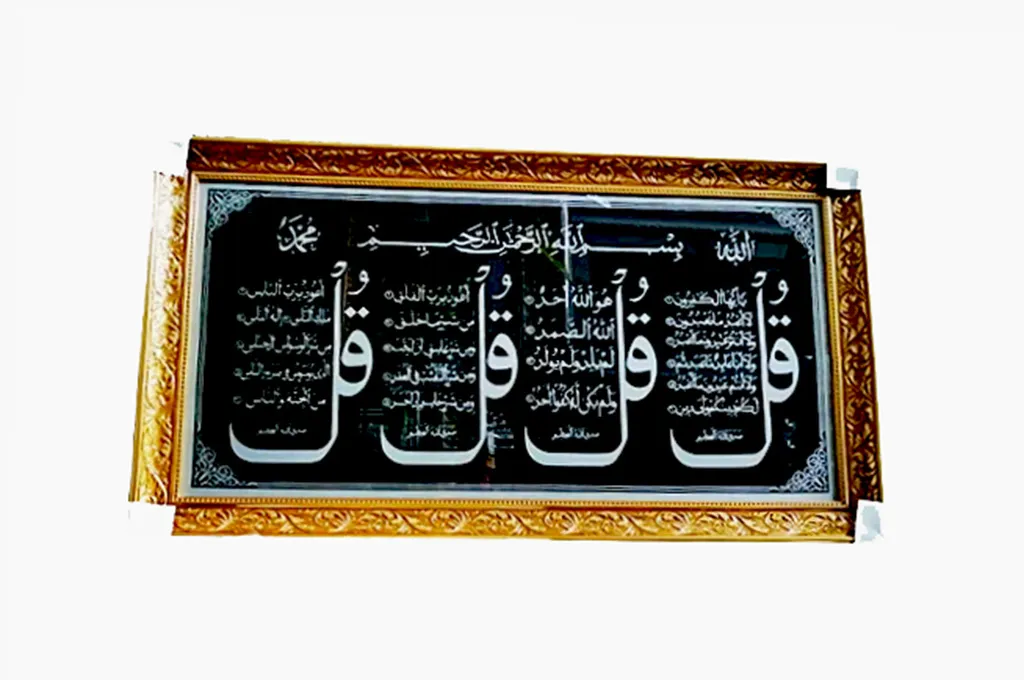 الله
بِسْمِ اللهِ الرَّحْمٰنِ الرَّحِيمِ
مُحَمَّد
قُلْ
يٰأَيُّهَا الْكٰفِرُونَ
لَا أَعْبُدُ مَا تَعْبُدُونَ
وَلَا أَنتُمْ عٰبِدُونَ مَا أَعْبُدُ
وَلَا أَنَا عَابِدٌ مَا عَبَدتُّمْ
وَلَا أَنتُمْ عٰبِدُونَ مَا أَعْبُدُ
لَكُمْ دِينُكُمْ وَلِيَ دِينِ
صدق الله العظيم
قُلْ
هُوَ اللهُ أَحَدٌ
اللهُ الصَّمَدُ
لَمْ يَلِدْ وَلَمْ يُولَدْ
وَلَمْ يَكُنْ لَهُ كُفُوًا أَحَدٌ
صدق الله العظيم
قُلْ
أَعُوذُ بِرَبِّ الْفَلَقِ
مِن شَرِّ مَا خَلَقَ
وَمِن شَرِّ غَاسِقٍ إِذَا وَقَبَ
وَمِن شَرِّ النَّفّٰثٰتِ فِي الْعُقَدِ
وَمِن شَرِّ حَاسِدٍ إِذَا حَسَدَ
صدق الله العظيم
قُلْ
أَعُوذُ بِرَبِّ النَّاسِ
مَلِكِ النَّاسِ إِلٰهِ النَّاسِ
مِن شَرِّ الْوَسْوَاسِ الْخَنَّاسِ
الَّذِي يُوَسْوِسُ فِي صُدُورِ النَّاسِ
مِنَ الْجِنَّةِ وَالنَّاسِ
صدق الله العظيم